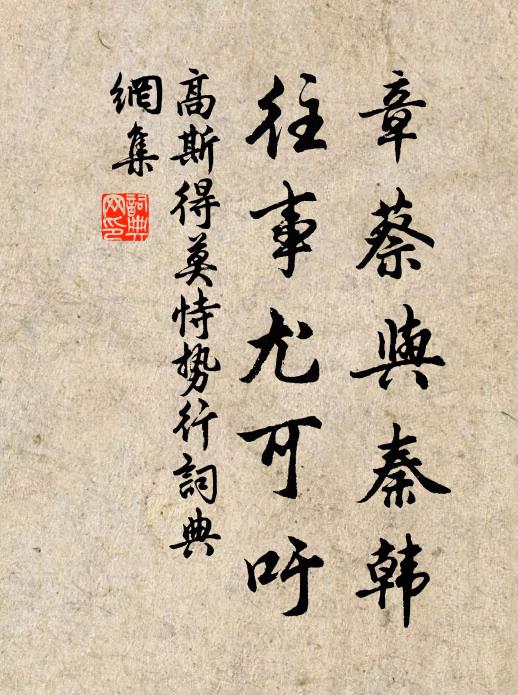 章蔡與秦韓
往事尤可吁
高斯得莫恃勢行詞典
網集
詞典
网印